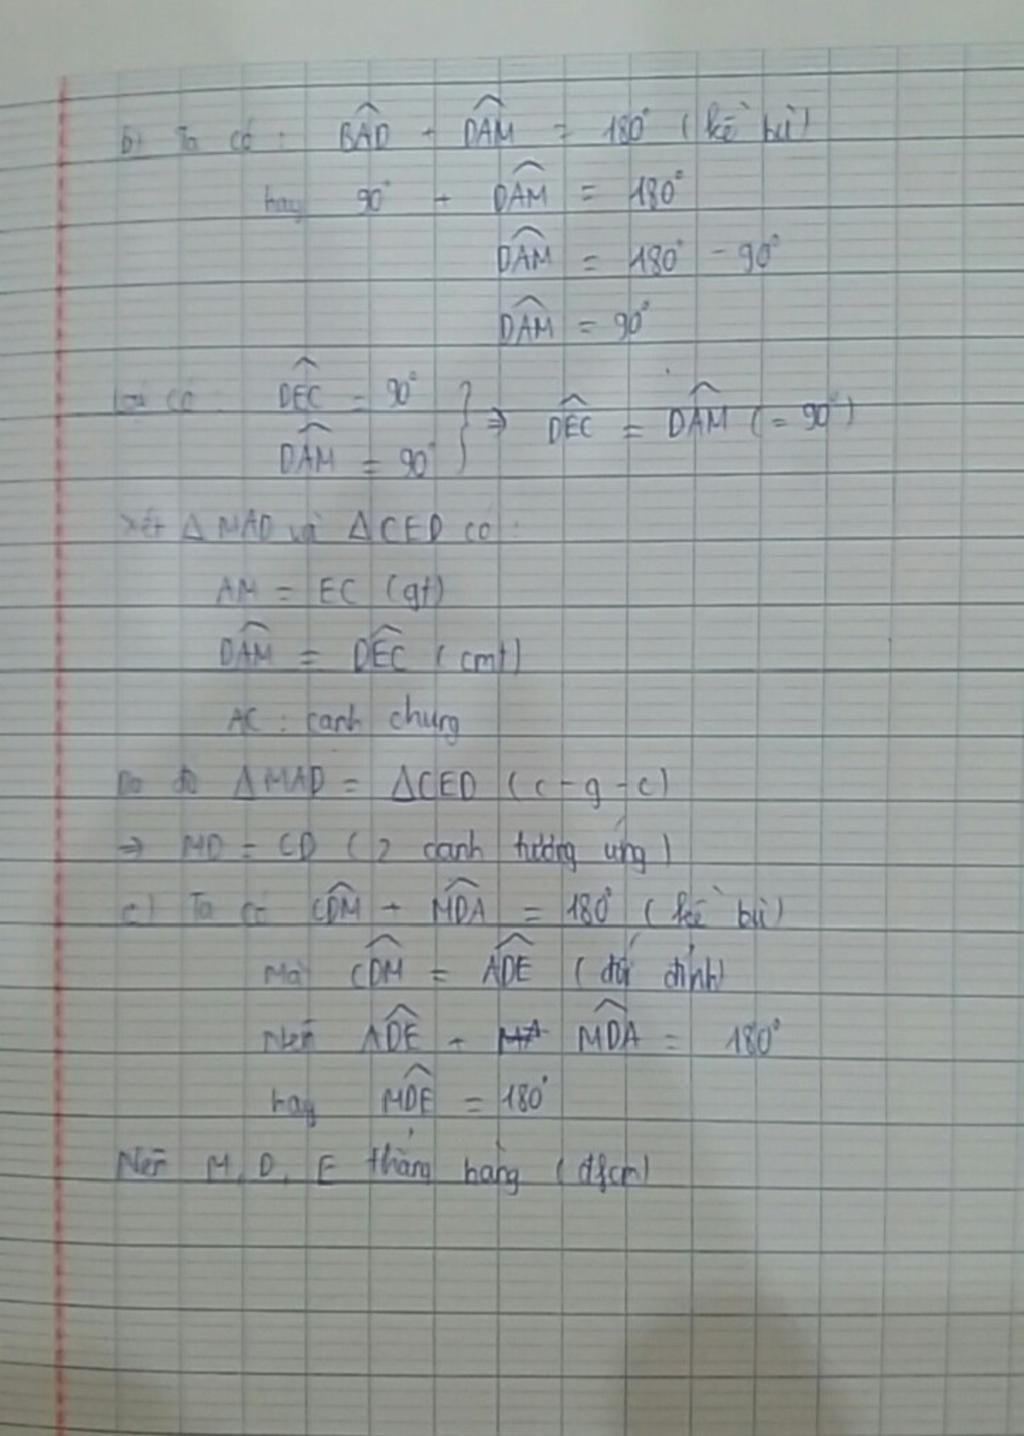 b) Ta có : BAD̂ + DAM̂ = 180° (kề bù)
hay 90° + DAM̂ = 180°
DAM̂ = 180° - 90°
DAM̂ = 90°
Lại có DEĈ = 90°
DAM̂ = 90° } ⇒ DEĈ = DAM̂ (= 90°)
Xét ∆ MAD và ∆CED có :
AM = EC (gt)
DAM̂ = DEĈ (cmt)
AC : cạnh chung
Do đó ∆MAD = ∆CED (c - g - c)
⇒ MD = CD (2 cạnh tướng ứng)
c) Ta có CDM̂ + MDÂ = 180° (kề bù)
Mà CDM̂ = ADÊ (đối đỉnh)
Nên ADÊ + MDÂ = 180°
hay MDÊ = 180°
Nên M, D, E thẳng hàng (đfcm)